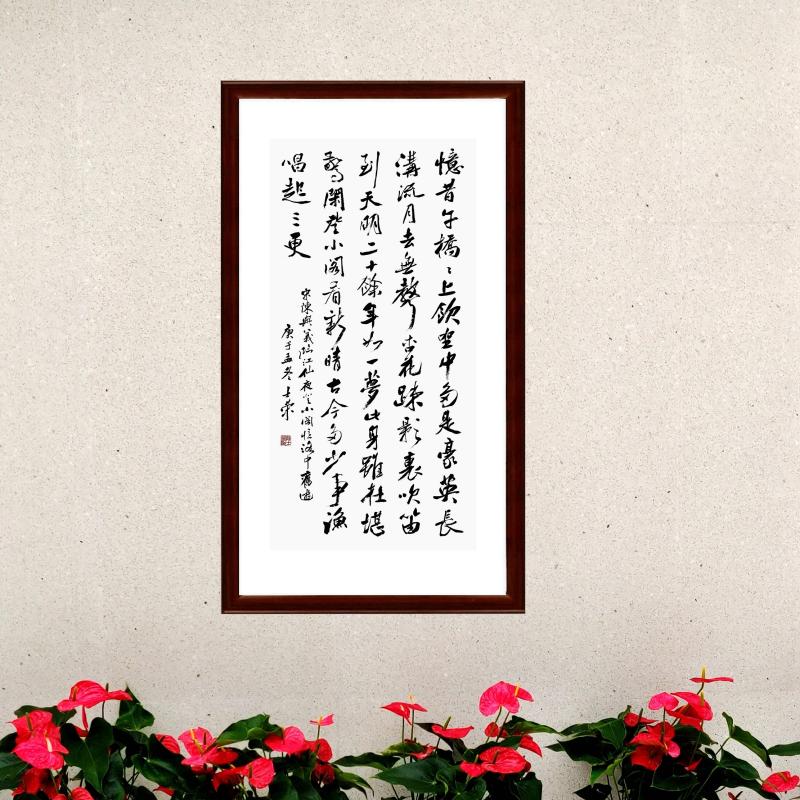 憶昔午橋〻上飲坐中多是豪英長
溝流月去無聲杏花疎影裏吹笛
到天明二十餘年如一夢此身雖在堪
驚閑登小閣看新晴古今多少事漁
唱起三更
宋陳與義臨江仙夜登小閣憶洛中舊遊
庚子孟冬士榮